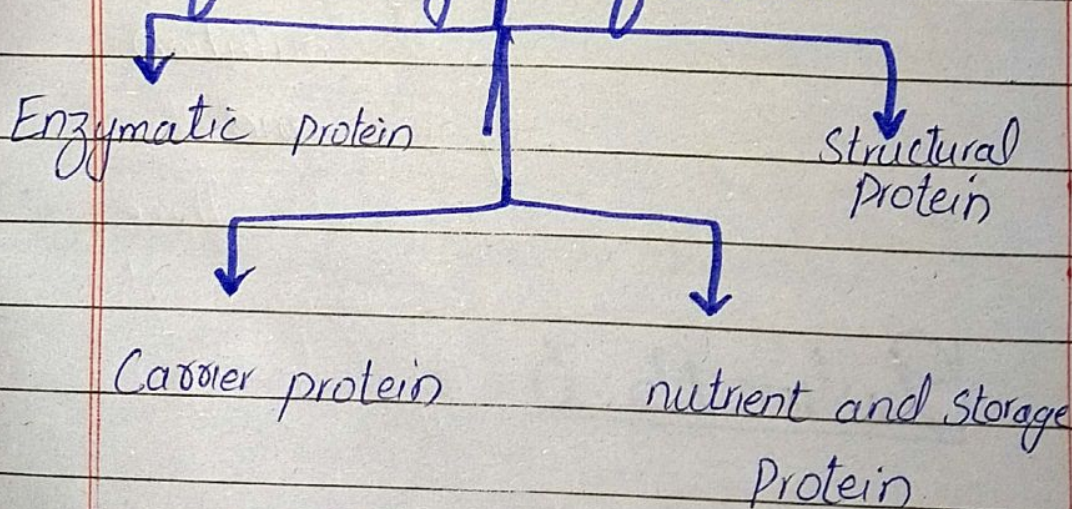 Enzymatic protein
Structural
Protein
Carrier protein
nutrient and Storage
Protein